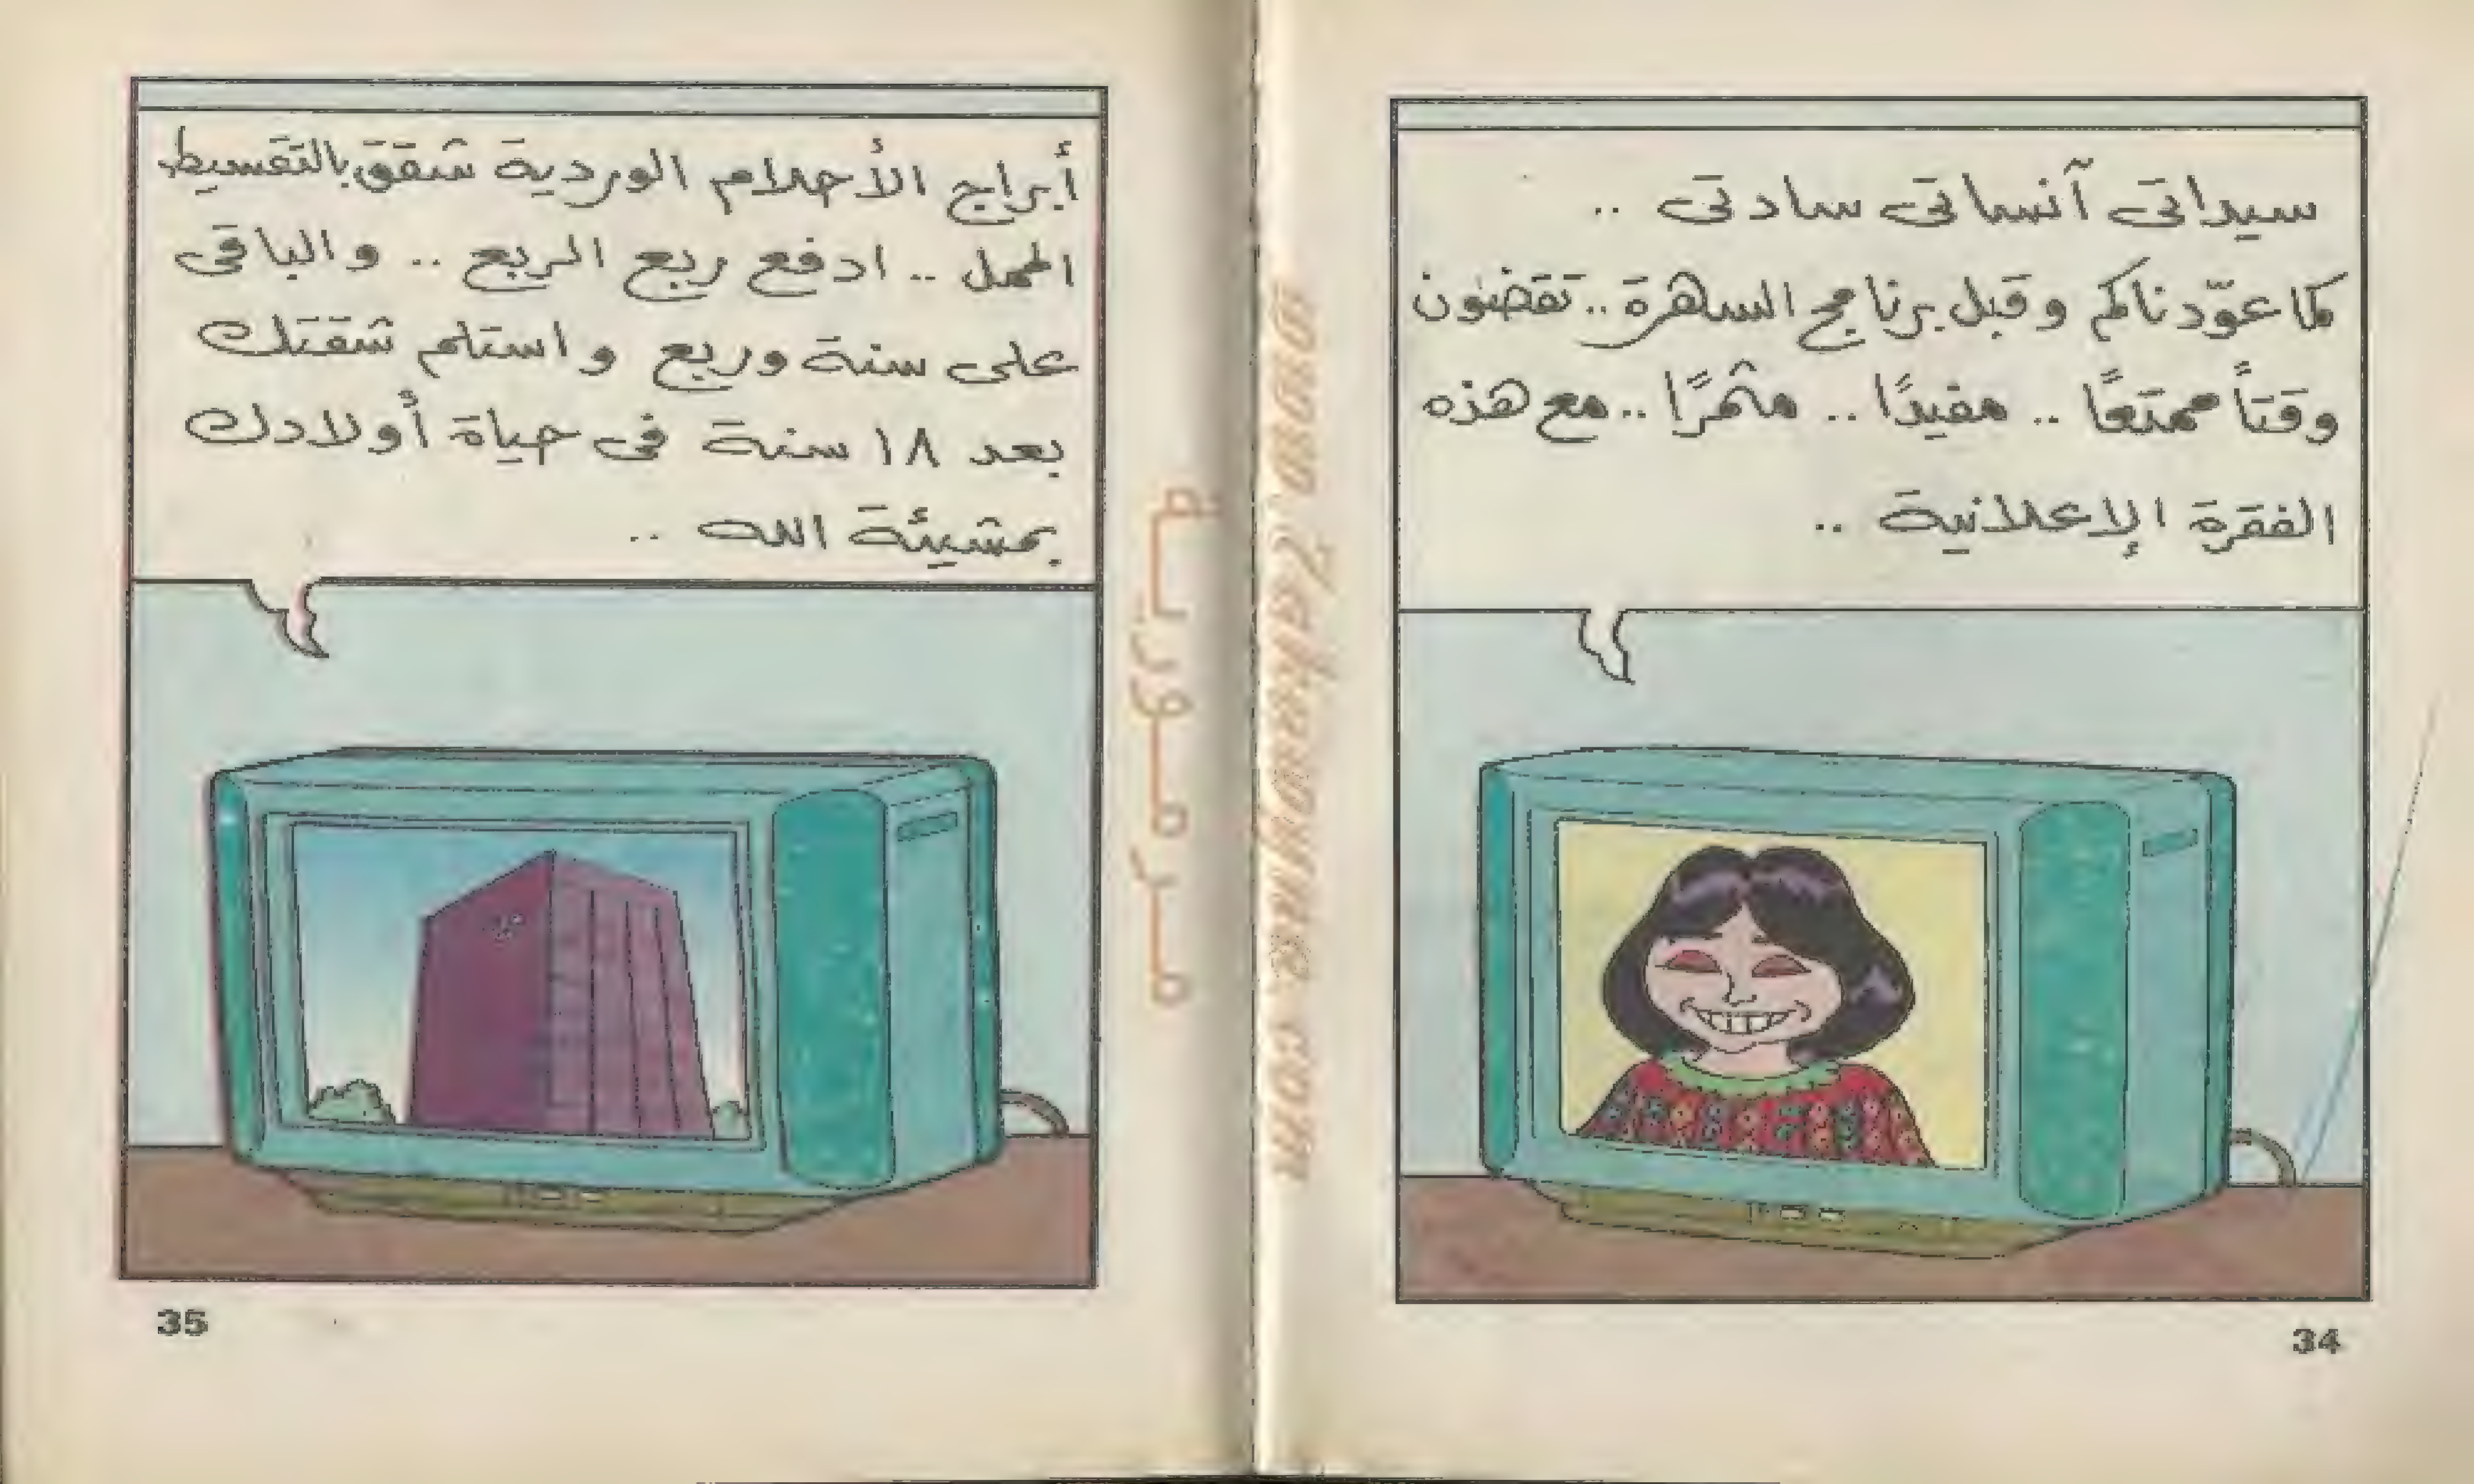 سيداتى آنساتى سادتى ..
كما عوّدناكم وقبل برنامج السهرة .. تقضون
وقتاً ممتعًا .. مفيدًا .. مثمرًا .. مع هذه
الفقرة الإعلانية ..
34
أبراج الأحلام الوردية شقق بالتقسيط
الممل .. ادفع ربع الربع .. والباقى
على سنة وربع واستلم شقتك
بعد ١٨ سنة فى حياة أولادك
بمشيئة الله ..
35
مرمورية